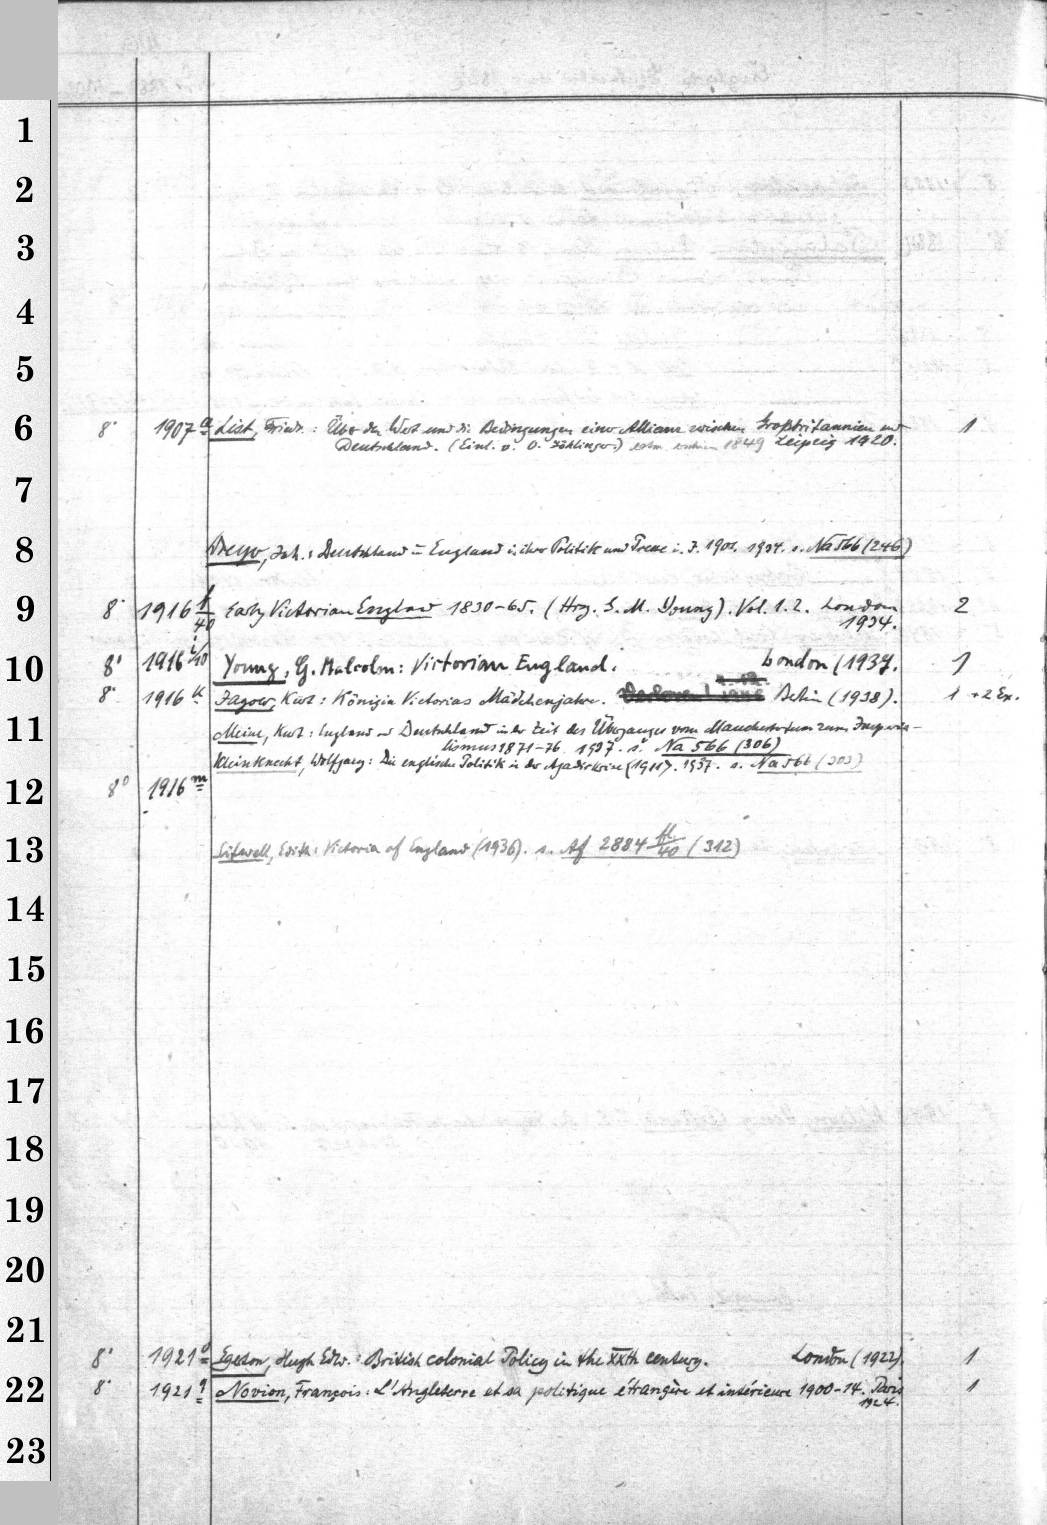 1
2
3
4
5
6
8° 1907 a List, Friedr.: Über den Wert und die Bedingungen einer Allianz zwischen Großbritannien und 1
Deutschland. (Einl. v. O. Jöhlinger.) 1849 Leipzig 1920.
7
8
Dreyer, Joh.: Deutschland u. England in ihrer Politik und Presse i. J. 1901. 1934. s. Na 566 (246)
9
8° 1916 f/40 Early Victorian England 1830-65. (Hrg. G. M. Young). Vol. 1. 2. London 2
1934.
10
8° 1916 i/40 Young, G. Malcolm: Victorian England. London (1937. 1
8° 1916 k Jagow, Kurt: Königin Victorias Mädchenjahre. Berlin (1938). 1 + 2 Ex.
11
Meine, Kurt: England und Deutschland in der Zeit des Überganges vom Manchestertum zum Imperia-
lismus 1871-76 1937. s. Na 566 (306)
Kleinknecht, Wolfgang: Die englische Politik in der Agadirkrise (1911). 1937. s. Na 566 (303)
12
8° 1916 m
13
Sitwell, Edith: Victoria of England (1936). s. Af 2884 /40 (312)
14
15
16
17
18
19
20
21
8° 1921 d Egerton, Hugh Edw.: British colonial Policy in the XXth century. London (1922). 1
22
8° 1921 q Novion, François: L'Angleterre et sa politique étrangère et intérieure 1900-14. Paris 1
1924.
23